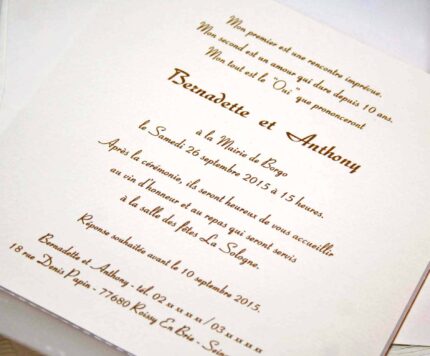 Mon premier est une rencontre imprévue.
Mon second est un amour qui dure depuis 10 ans.
Mon tout est le "Oui" que prononceront
Bernadette et Anthony
à la Mairie de Borgo
le Samedi 26 septembre 2015 à 15 heures.
Après la cérémonie, ils seront heureux de vous accueillir
au vin d'honneur et au repas qui seront servis
à la salle des fêtes La Sologne.
Réponse souhaitée avant le 10 septembre 2015.
Bernadette et Anthony - tel. 02 xx xx xx / 03 xx xx xx
18 rue Denis Papin - 77680 Roissy En Brie - Sein